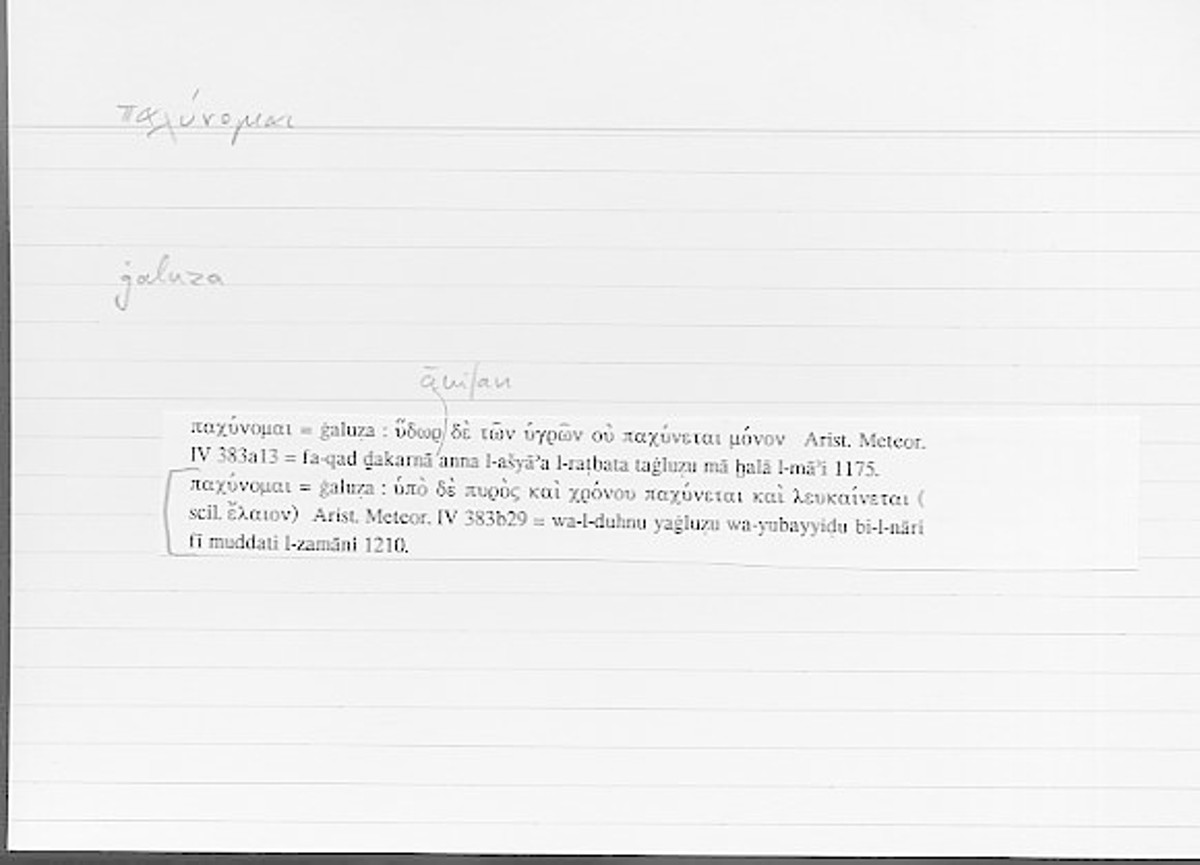 παχύνομαι
ġaluẓa
āniḍan
παχύνομαι = ġaluẓa : ὕδωρ δὲ τῶν ὑγρῶν οὐ παχύνεται μόνον Arist. Meteor.
IV 383a13 = fa-qad ḏakarnā anna l-ašyāʾa l-raṭbata taġluẓu mā ḫalā l-māʾi 1175.
παχύνομαι = ġaluẓa : ὑπὸ δὲ πυρὸς καὶ χρόνου παχύνεται καὶ λευκαίνεται (
scil. ἔλαιον) Arist. Meteor. IV 383b29 = wa-l-duhnu yaġluẓu wa-yubayyiḍu bi-l-nāri
fī muddati l-zamāni 1210.